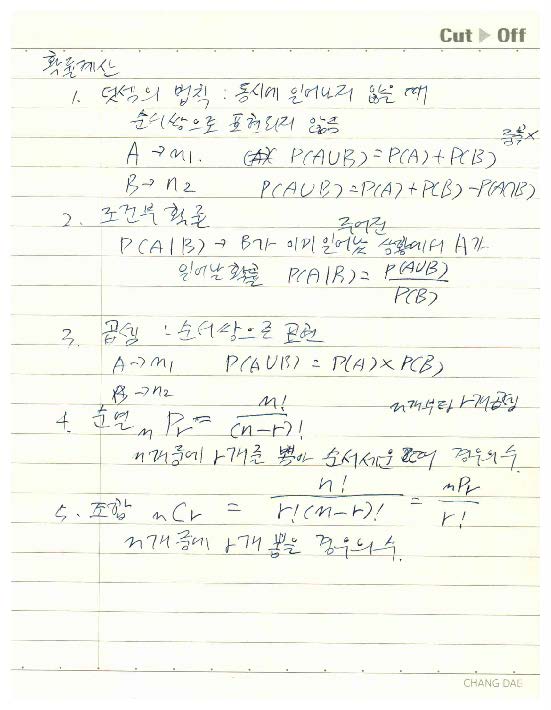 Cut ▶ Off
확률계산
1. 덧셈의 법칙 : 동시에 일어나지 않을 때
순서쌍으로 표현되지 않음
중복×
A → n1. P(A∪B) = P(A) + P(B)
B → n2 P(A∪B) = P(A) + P(B) - P(A∩B)
2. 조건부 확률
주어진
P(A|B) → B가 이미 일어난 상황에서 A가
일어날 확률 P(A|B) = P(A∪B) / P(B)
3. 곱셈 : 순서쌍으로 표현
A → n1 P(A∪B) = P(A) × P(B)
B → n2
n개부터 r개 곱셈
4. 순열 nPr = n! / (n-r)!
n개중에 r개를 뽑아 순서세운 경우의 수.
5. 조합 nCr = n! / r!(n-r)! = nPr / r!
n개 중에 r개 뽑을 경우의 수.
CHANG DAE